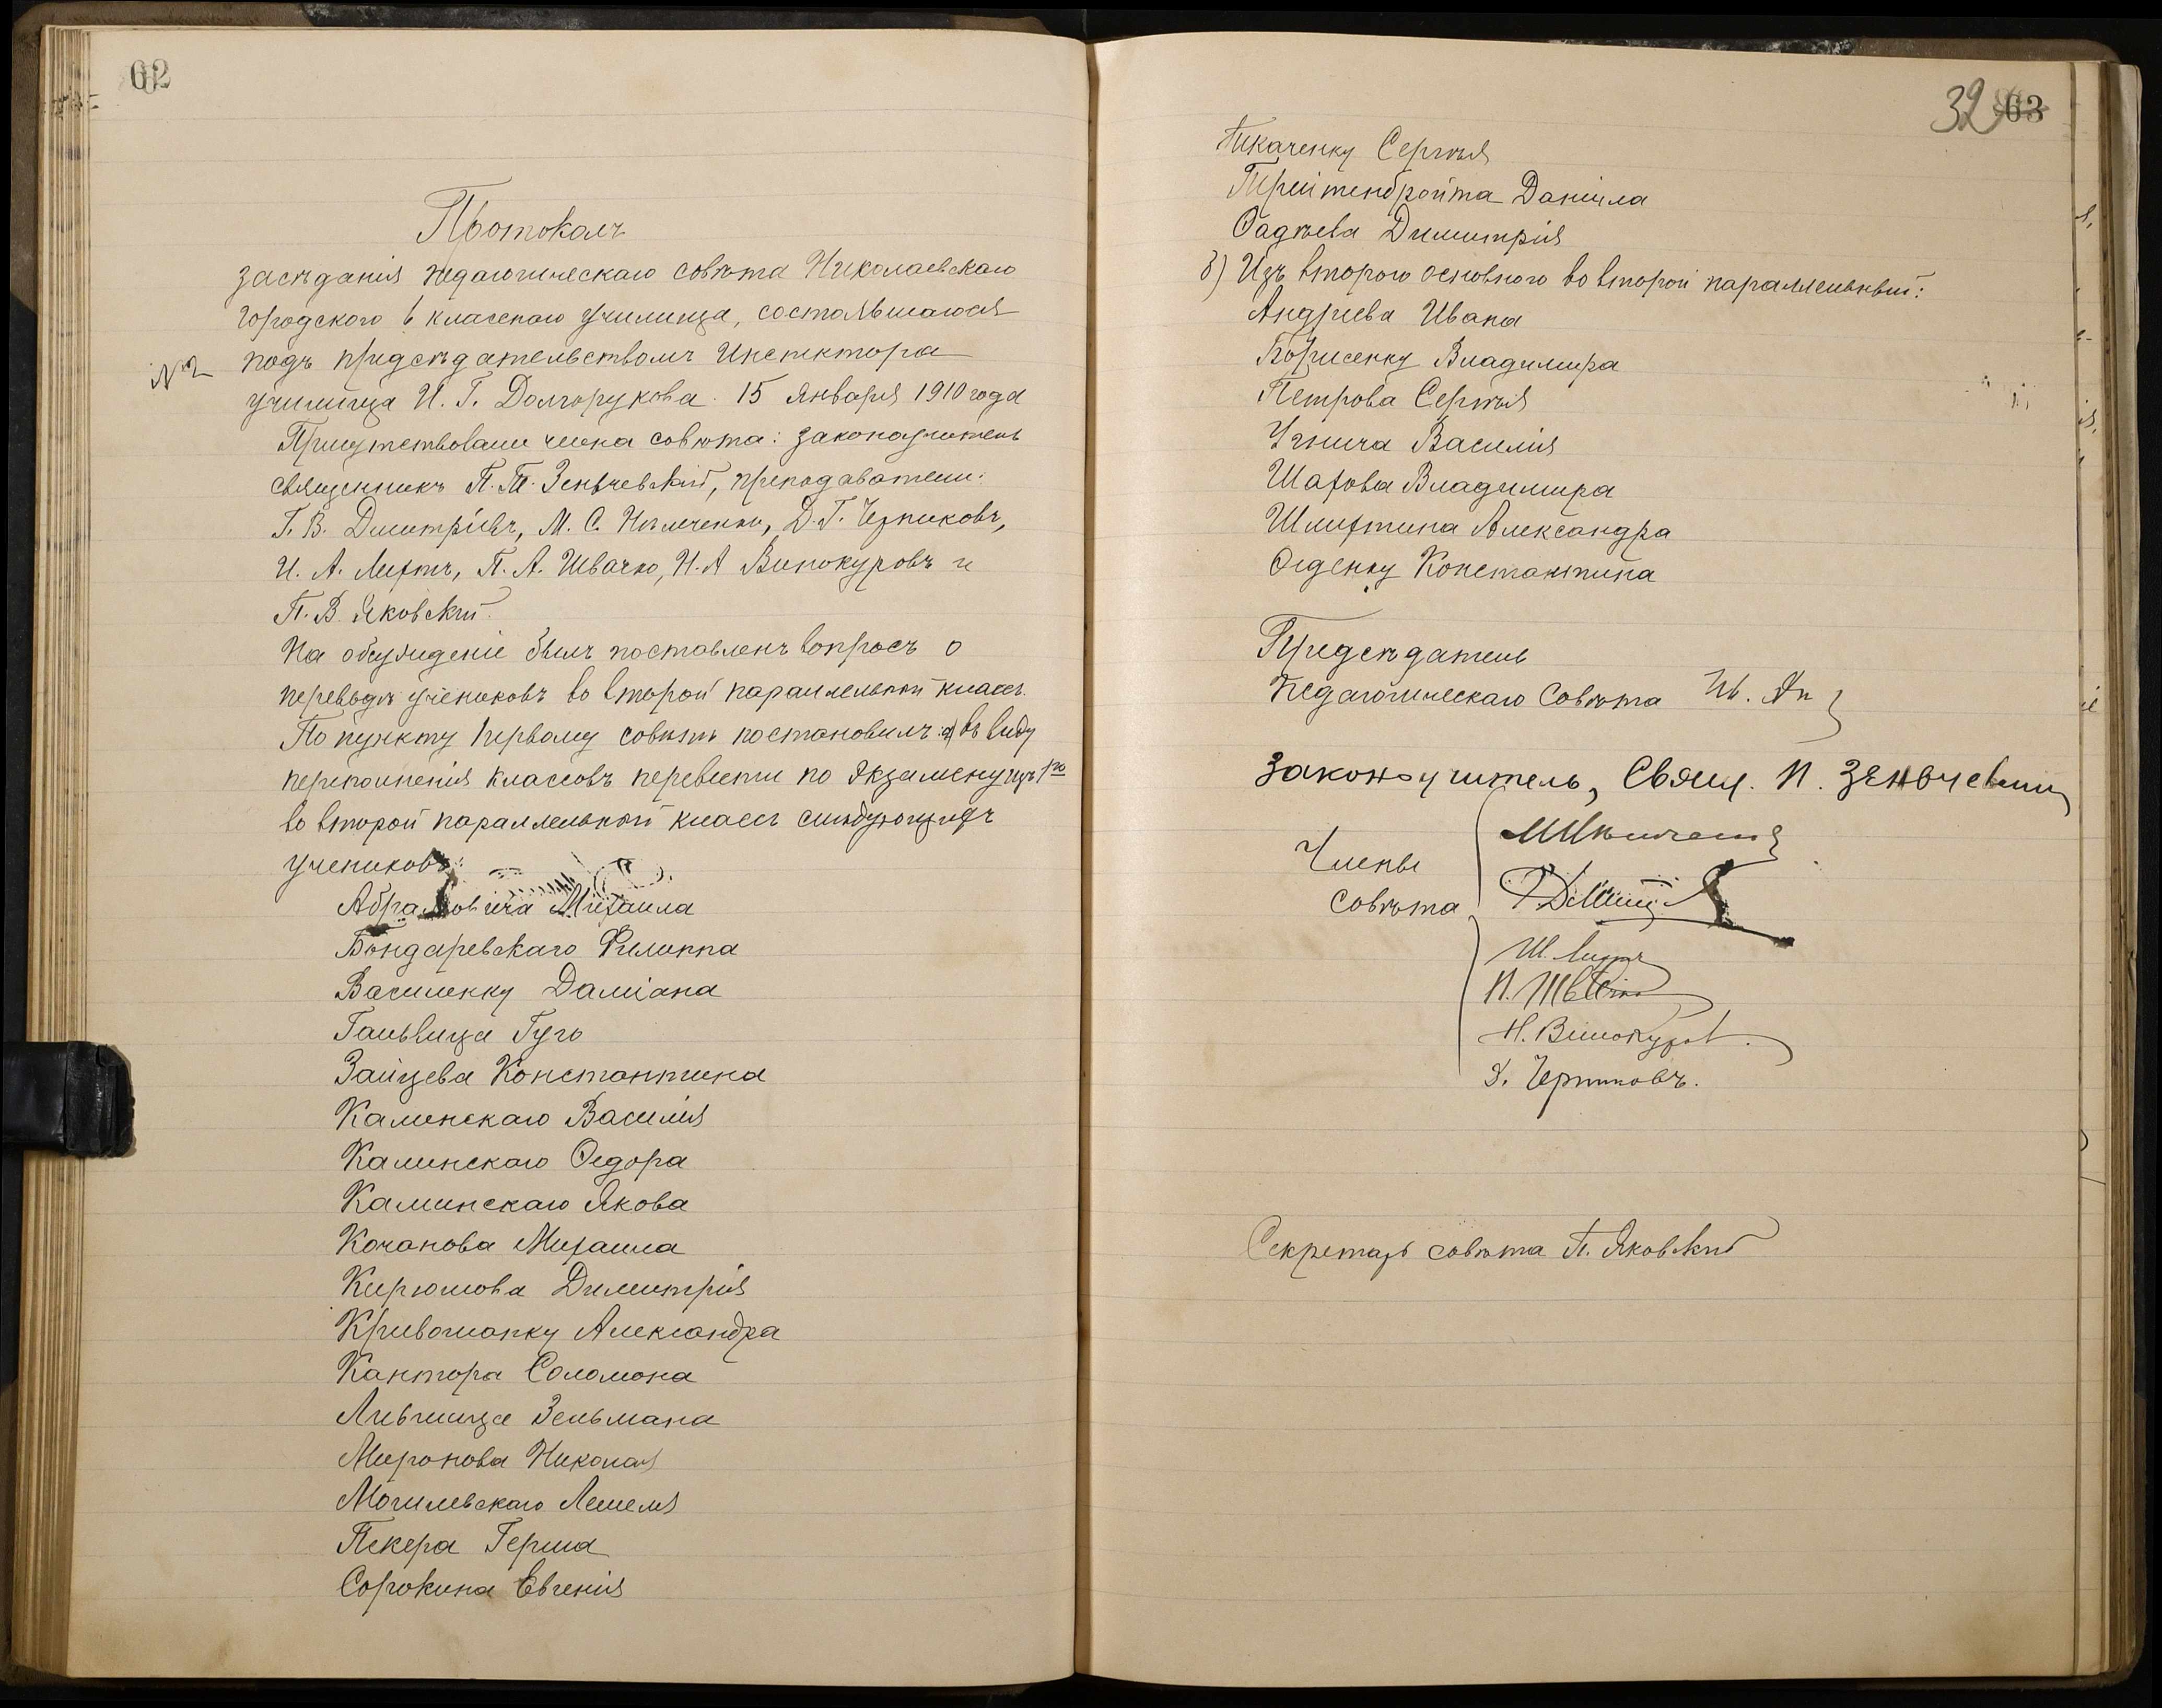 62
Протоколъ
засѣданія педагогическаго совѣта Николаевскаго
городского 6 класснаго училища, состоявшагося
№2 подъ предсѣдательствомъ Инспектора
училища И. Г. Долгорукова. 15 Января 1910 года
Присутствовали члена совѣта: законоучитель
священникъ П. Т. Зеньчевскій, преподаватели:
Г. В. Дмитріевъ, М. С. Ильченко, Д. Г. Чернико́въ,
И. А. Лифтъ, П. А. Швачко, Н. А Винокуровъ и
П. В. Яковскій.
На обсужденіе былъ поставленъ вопросъ о
переводѣ учениковъ во второй параллельный классъ.
По пункту первому совѣтъ постановилъ: а) въ виду
переполненія классовъ перевести по экзамену изъ 1го
во второй параллельный классъ слѣдующихъ
учениковъ:
Абрамовича Михаила
Бондаревскаго Филиппа
Василенку Даміана
Гальвица Гуго
Зайцева Константина
Каминскаго Василія
Каминскаго Ѳедора
Каминскаго Якова
Качанова Михаила
Кирюшова Димитрія
Кривошапку Александра
Кантора Соломона
Лившица Зельмана
Миронова Николая
Могилевскаго
Пекера Герша
Сорокина Евгенія
32 63
Ткаченку Сергѣя
Трейтенбройта Даніила
Ѳадѣева Димитрія
б) Изъ второго основного во второй параллельный:
Андріева Ивана
Борисенку Владимира
Петрова Сергѣя
Василія
Шахова Владимира
Шлифтина Александра
Ѳеденку Константина
Предсѣдатель
Педагогическаго Совѣта
Законоучитель, Свящ. П. Зеньчевскій
Члены
совѣта
И. Лифтъ
П. Швачко
Н. Винокуров.
Д. Черниковъ.
Секретарь совѣта П. Яковскій